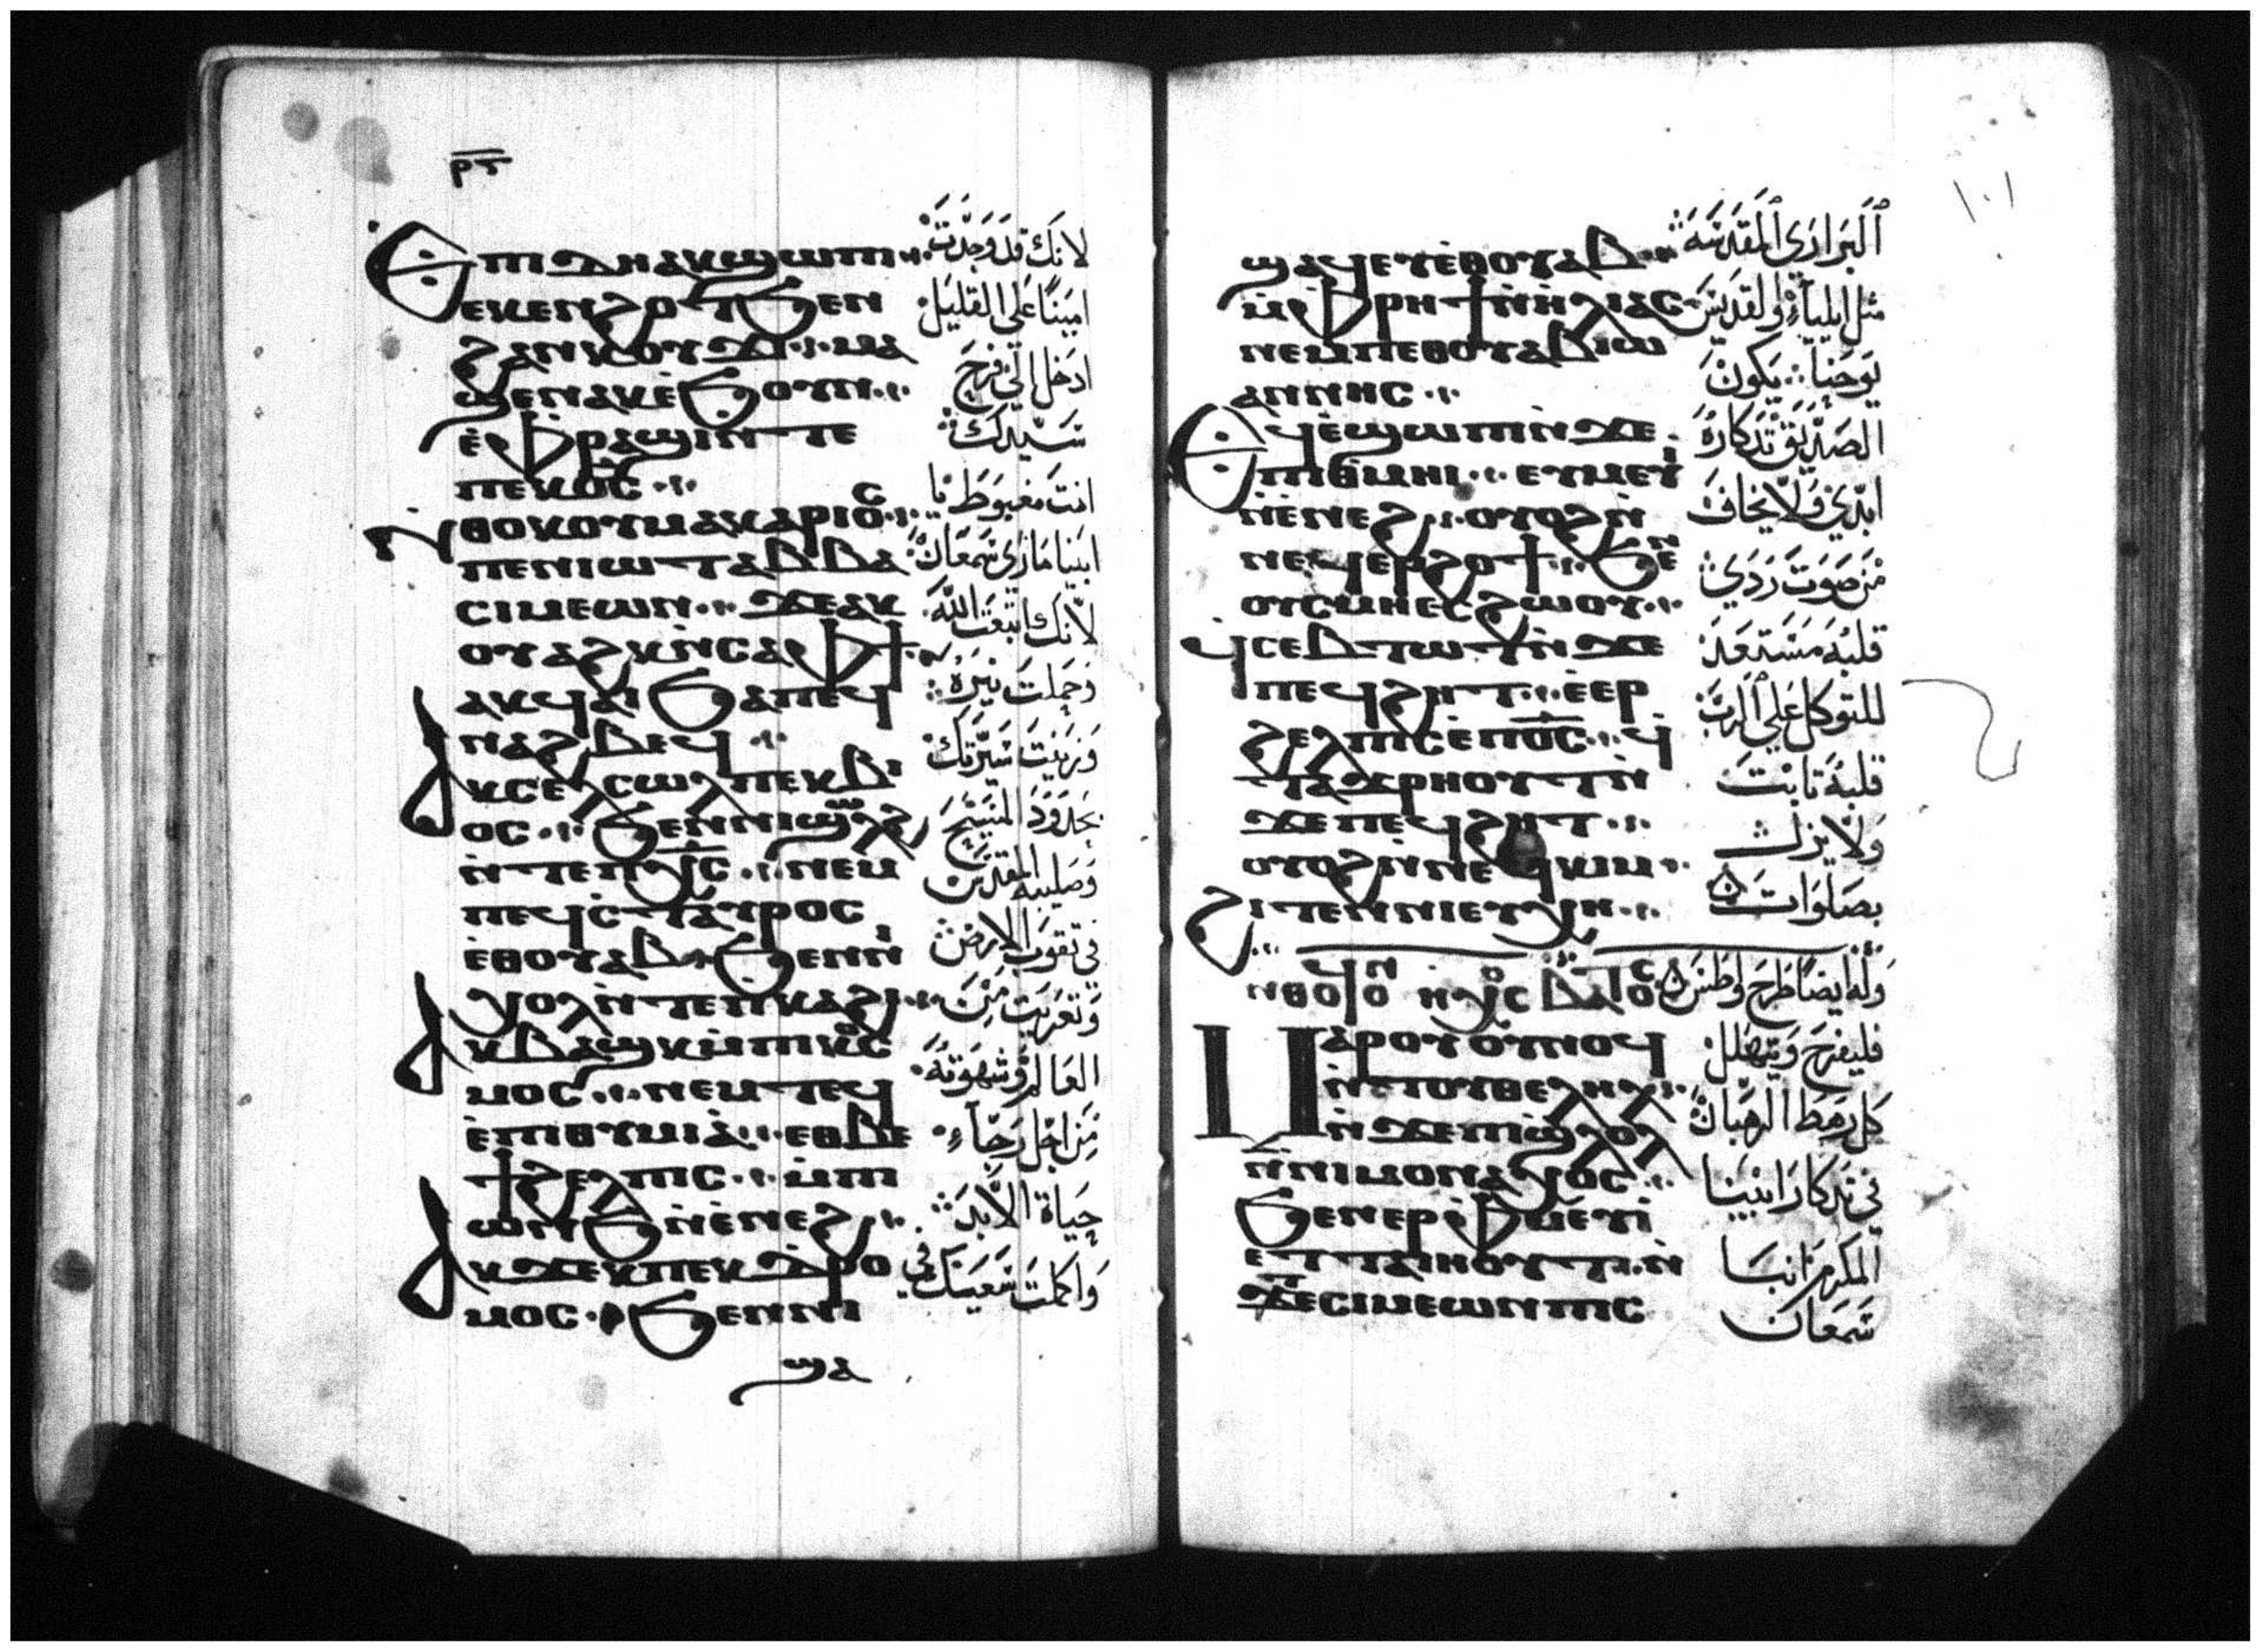 ⲣⲋ̅
Ⲉⲡⲓⲇⲏ ⲁⲕϣⲱⲡⲓ
ⲉⲕⲉⲛϩⲟⲧ ϧⲉⲛ
ϩⲁⲛⲕⲟⲩϫⲓ ⲙⲁ
ϣⲉⲛⲁⲕ ⲉ̀ϧⲟⲩⲛ
ⲉ̀ⲫⲣⲁϣⲓ ⲛ̀ⲧⲉ
ⲡⲉⲕⲟ̅ⲥ̅
Ⲛⲑⲟⲕ ⲟⲩⲙⲁⲕⲁⲣⲓⲟⲥ
ⲡⲉⲛⲓⲱⲧ ⲁⲃⲃⲁ
ⲥⲓⲙⲉⲱⲛ ϫⲉ ⲁⲕ
ⲟⲩⲁϩⲕ ⲛ̀ⲥⲁ ⲫϯ
ⲁⲕϥⲁⲓ ϧⲁ ⲡⲉϥ
ⲛⲁϩⲃⲉϥ
Ⲁⲕⲥⲉⲗⲥⲱⲗ ⲡⲉⲕⲃⲓ
ⲟⲥ ϧⲉⲛ ⲛⲓϣⲱⲗϩ
ⲛ̀ⲧⲉ ⲡⲭ̅ⲥ̅ ⲛⲉⲙ
ⲡⲉϥⲥ̀ⲧⲁⲩⲣⲟⲥ
ⲉ̀ⲑⲟⲩⲁⲃ ϧⲉⲛ ⲛⲓ
ⲭⲟⲗ ⲛ̀ⲧⲉ ⲡⲕⲁϩⲓ
Ⲁⲕⲃⲁϣⲕ ⲙ̀ⲡⲓⲕⲟⲥ
ⲙⲟⲥ ⲛⲉⲙ ⲧⲉϥ
ⲉ̀ⲡⲓⲑⲩⲙⲓⲁ̀ ⲉⲑⲃⲉ
ϯϩⲉⲗⲡⲓⲥ ⲙ̀ⲡⲓ
ⲱⲛϧ ⲛ̀ⲉ̀ⲛⲉϩ
Ⲁⲕϫⲉⲕ ⲡⲉⲕⲇⲣⲟ
ⲙⲟⲥ ϧⲉⲛ ⲛⲓ
ϣⲁ
لانك قد وجدت
امينا على القليل
ادخل الى فرح
سيدك
انت مغبوط يا
ابينا ماري سمعان
لانك اتبعت الله
وحملت نيره
وزينت سيرتك
بحدود المسيح
وصليبه المقدس
في نقوب الارض
وتعريت من
العالم وشهوته
من اجل رجاء
حياة الابد
واكملت سعيك في
١٠١
ϣⲁϥⲉⲩ ⲉ̀ⲑⲟⲩⲁⲃ
ⲙ̀ⲫⲣⲏϯ ⲛ̀ⲏ̀ⲗⲓⲁⲥ
ⲛⲉⲙ ⲡⲉⲑⲟⲩⲁⲃ ⲓⲱ
ⲁⲛⲛⲏⲥ
Ⲉϥⲉ̀ϣⲱⲡⲓ ⲛ̀ϫⲉ
ⲡⲓⲑⲙⲏⲓ ⲉⲩⲙⲉⲩⲓ̀
ⲛ̀ⲉ̀ⲛⲉϩ ⲟⲩⲟϩ ⲛ̀
ⲛⲉϥⲉⲣϩⲟϯ ϧⲉⲛ
ⲟⲩⲥⲙⲏ ⲉⲥϩⲱⲟⲩ
ϥⲥⲉⲃⲧⲱⲧ ⲛ̀ϫⲉ
ⲡⲉϥϩⲏⲧ ⲉ̀ⲉⲣ
ϩⲉⲗⲡⲓⲥ ⲉ̀ⲡⲟ̅ⲥ̅ ϥ̀
ⲧⲁϫⲣⲏⲟⲩⲧ ⲛ̀
ϫⲉ ⲡⲉϥϩⲏⲧ
ⲟⲩⲟϩ ⲛ̀ⲛⲉϥⲕⲓⲙ
ϩⲓⲧⲉⲛ ⲛⲓⲉⲩⲭⲏ
Ⲙⲁⲣⲟⲩⲟⲩⲛⲟϥ
ⲛ̀ⲧⲟⲩⲑⲉⲗⲏⲗ
ⲛ̀ϫⲉ ⲡⲓϣⲗⲟⲗ
ⲛ̀ⲛⲓⲙⲟⲛⲁⲭⲟⲥ
ϧⲉⲛ ⲉⲣⲫⲙⲉⲩⲓ̀
ⲉⲧⲧⲁⲓⲏⲟⲩⲧ ⲛ̀
ϫⲉ ⲥⲓⲙⲉⲱⲛ ⲡⲓⲥ
البراري المقدسة
مثل ايلياء والقديس
يوحنا يكون
الصديق تذكاره
ابدي ولا يخاف
من صوت ردي
قلبه مستعد
للتوكل على الرب
قلبه ثابت
ولا يزل
بصلوات
وله ايضا طرح واطس
فليفرح ويتهلل
كل رهط الرهبان
في تذكار ابينا
المكرم انبا
سمعان